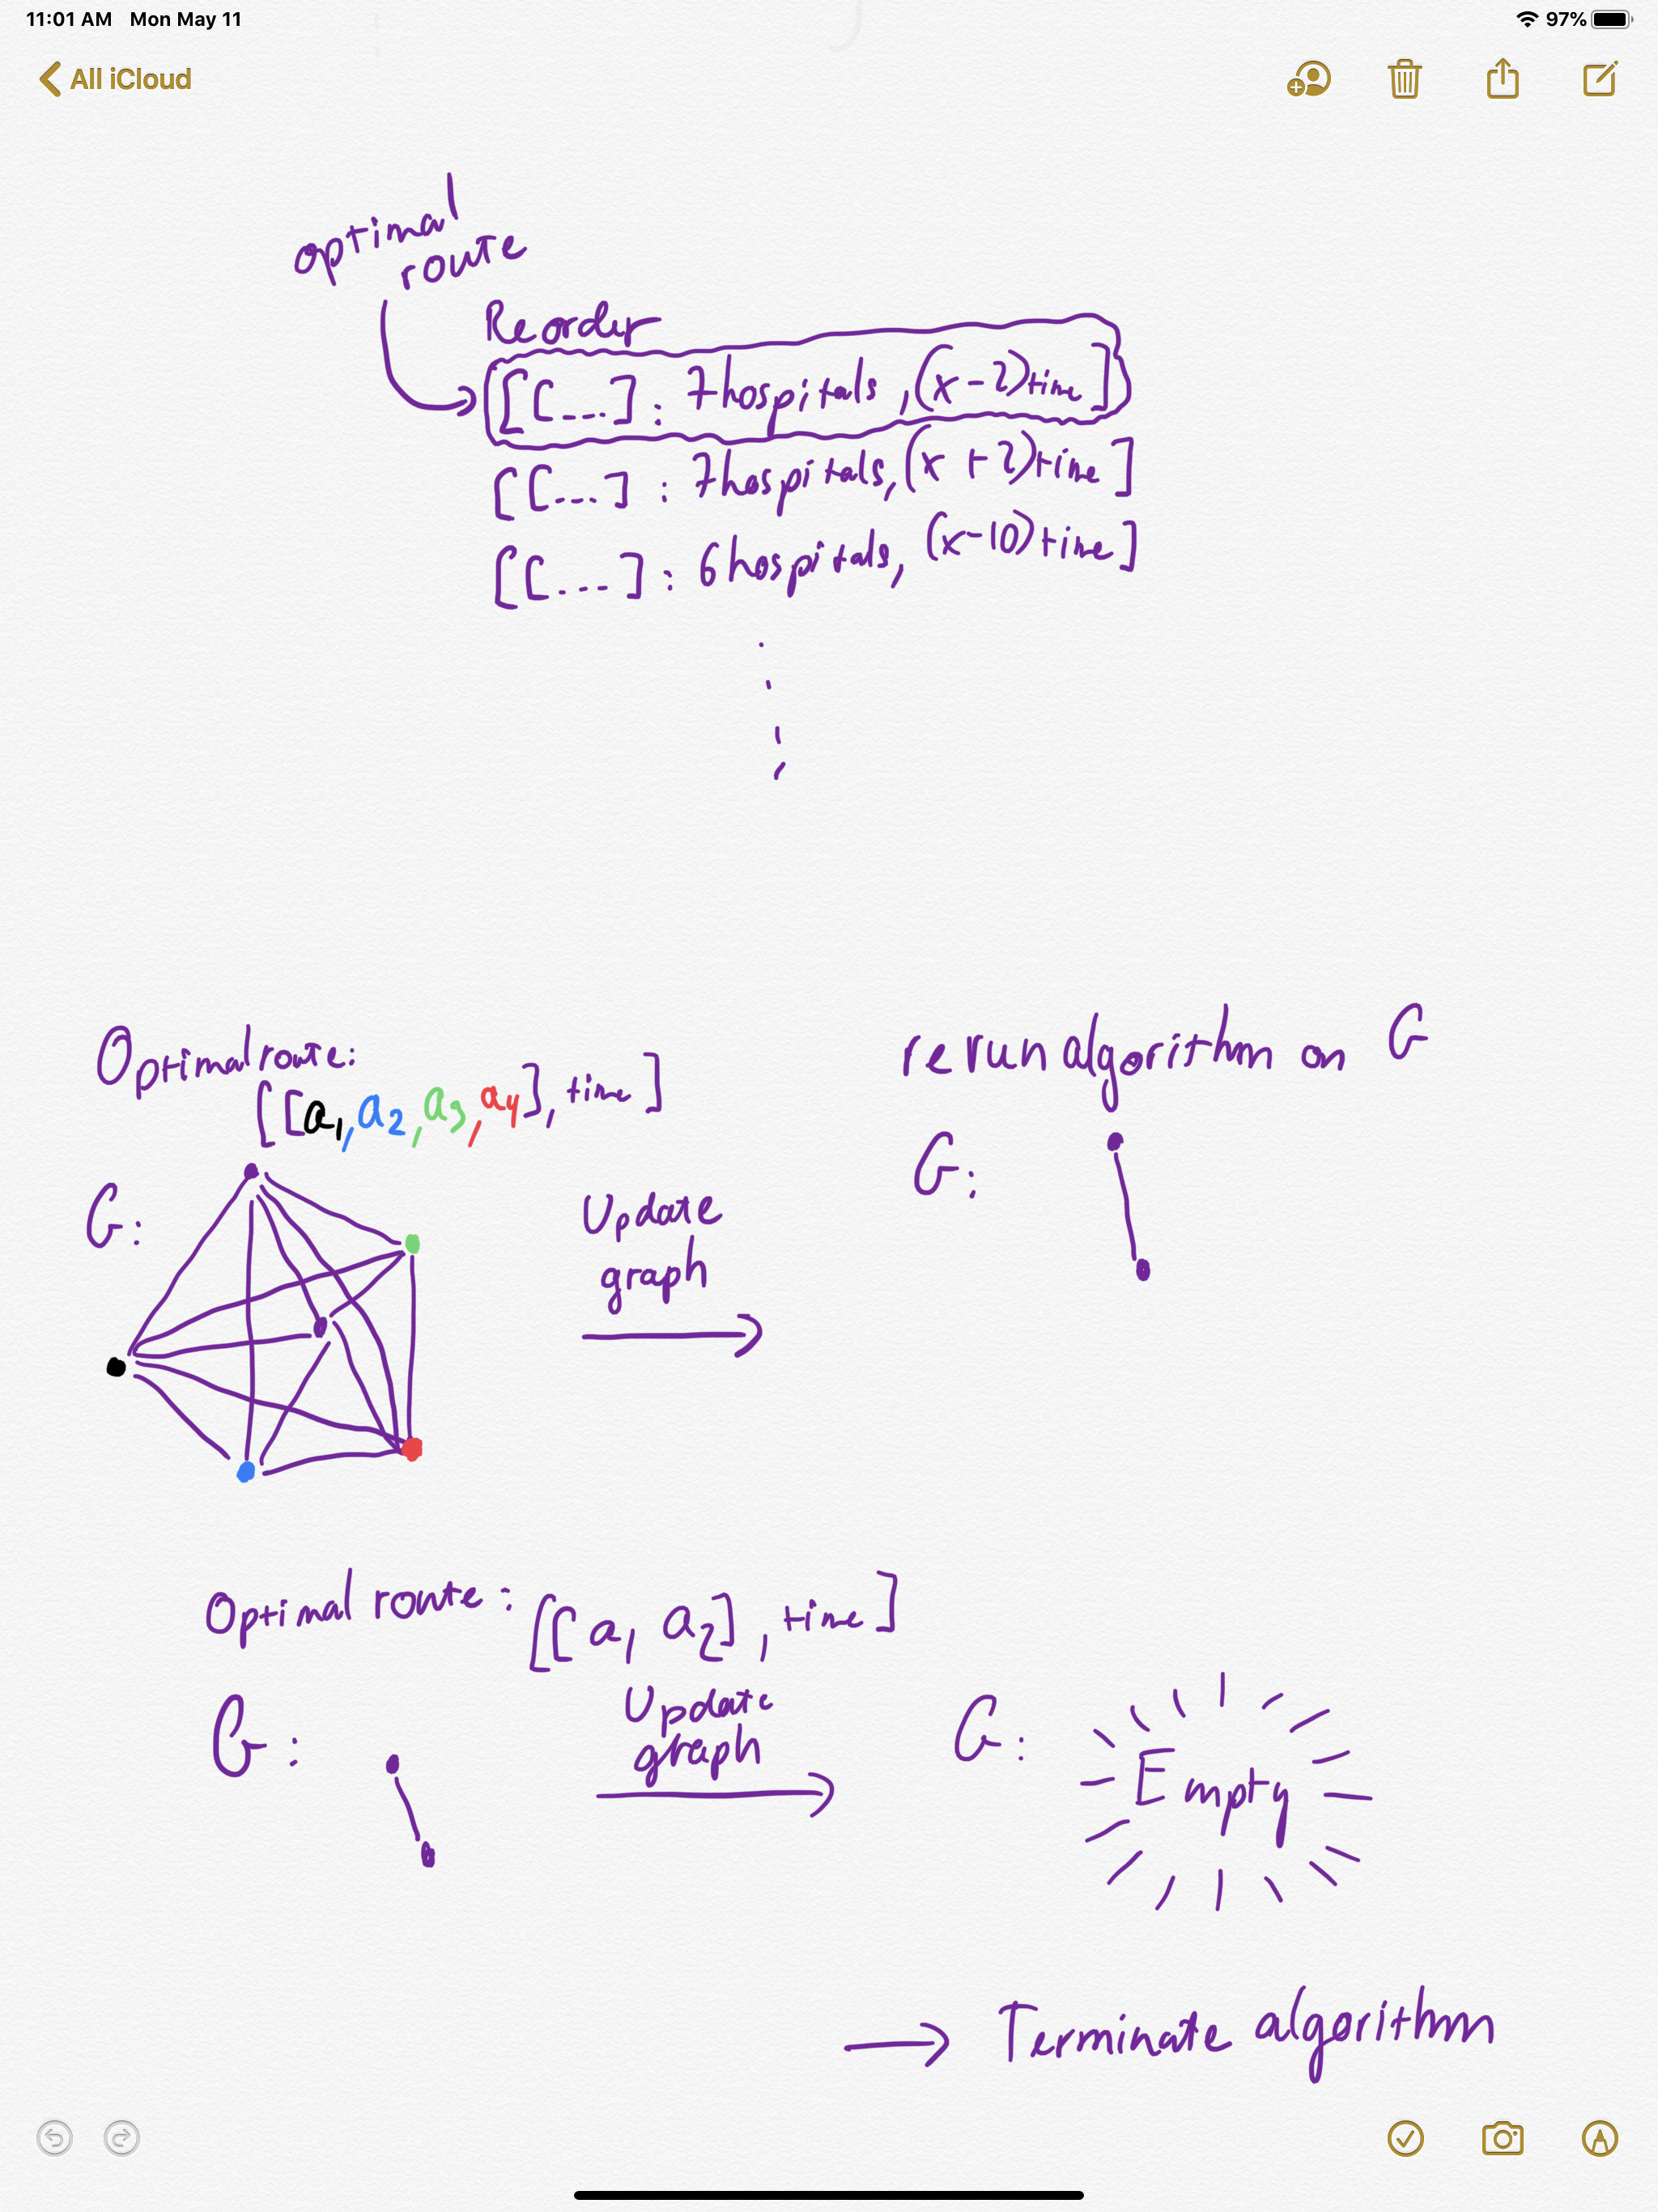 11:01 AM Mon May 11
97%
All iCloud
optimal
route
Reorder
[[...]: 7 hospitals, (x-2) time]
[[...]: 7 hospitals, (x+2) time]
[[...]: 6 hospitals, (x-10) time]
Optimal route:
[[a1, a2, a3, a4], time]
G:
Update
graph
rerun algorithm on G
G:
Optimal route: [[a1 a2], time]
G:
Update
graph
G:
Empty
→ Terminate algorithm